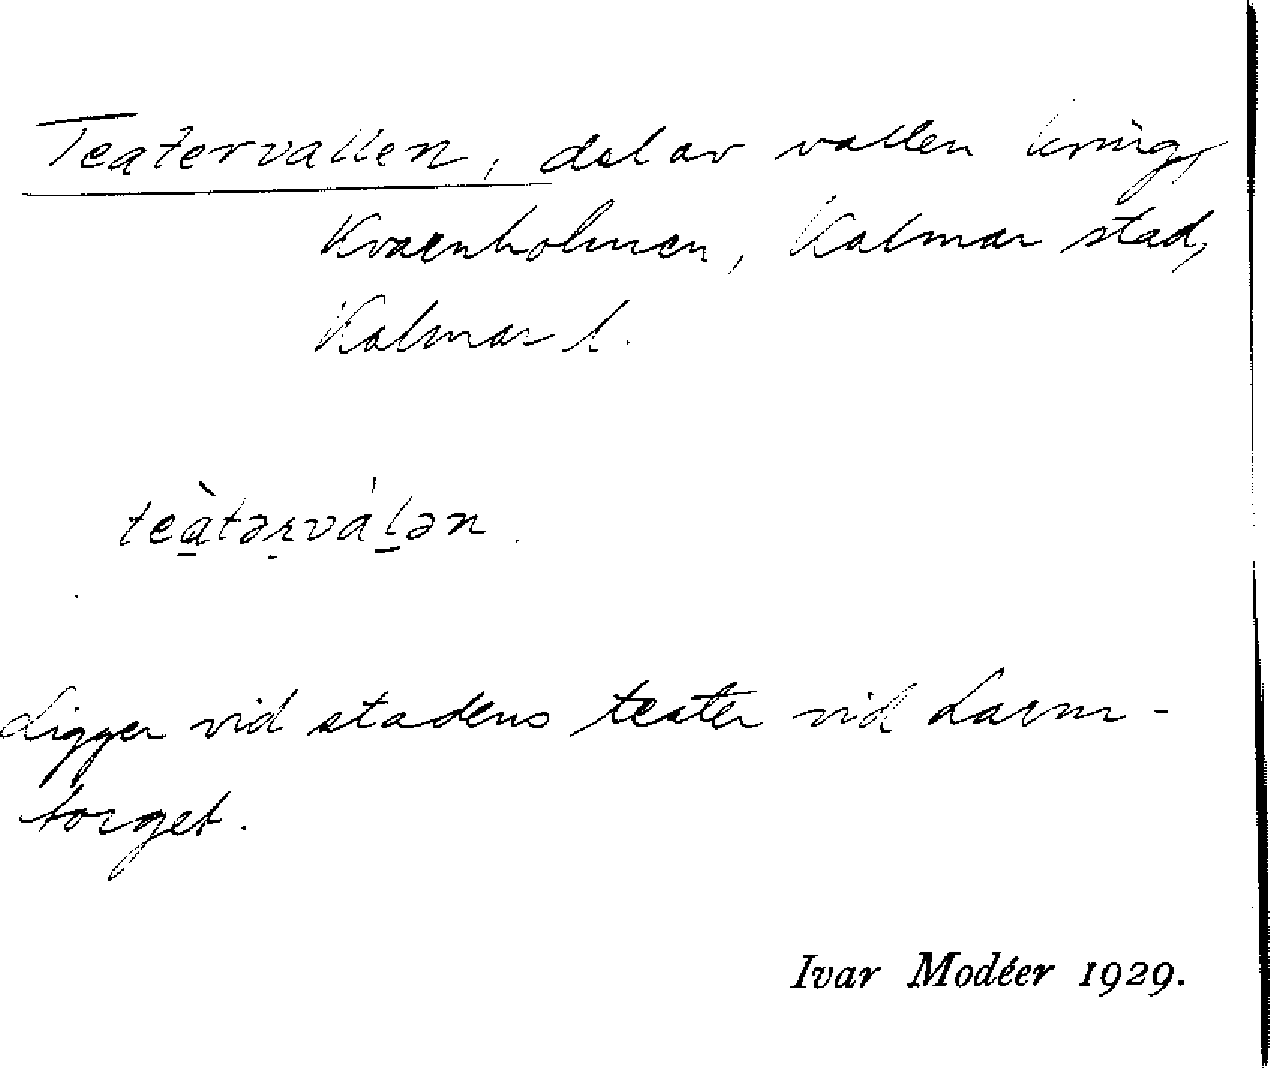 Teatervallen, del av vallen kring
Kvarnholmen, Kalmar stad,
Kalmar l.
teàtərválən.
Ligger vid stadens teater vid Larm-
torget.
Ivar Modéer 1929.